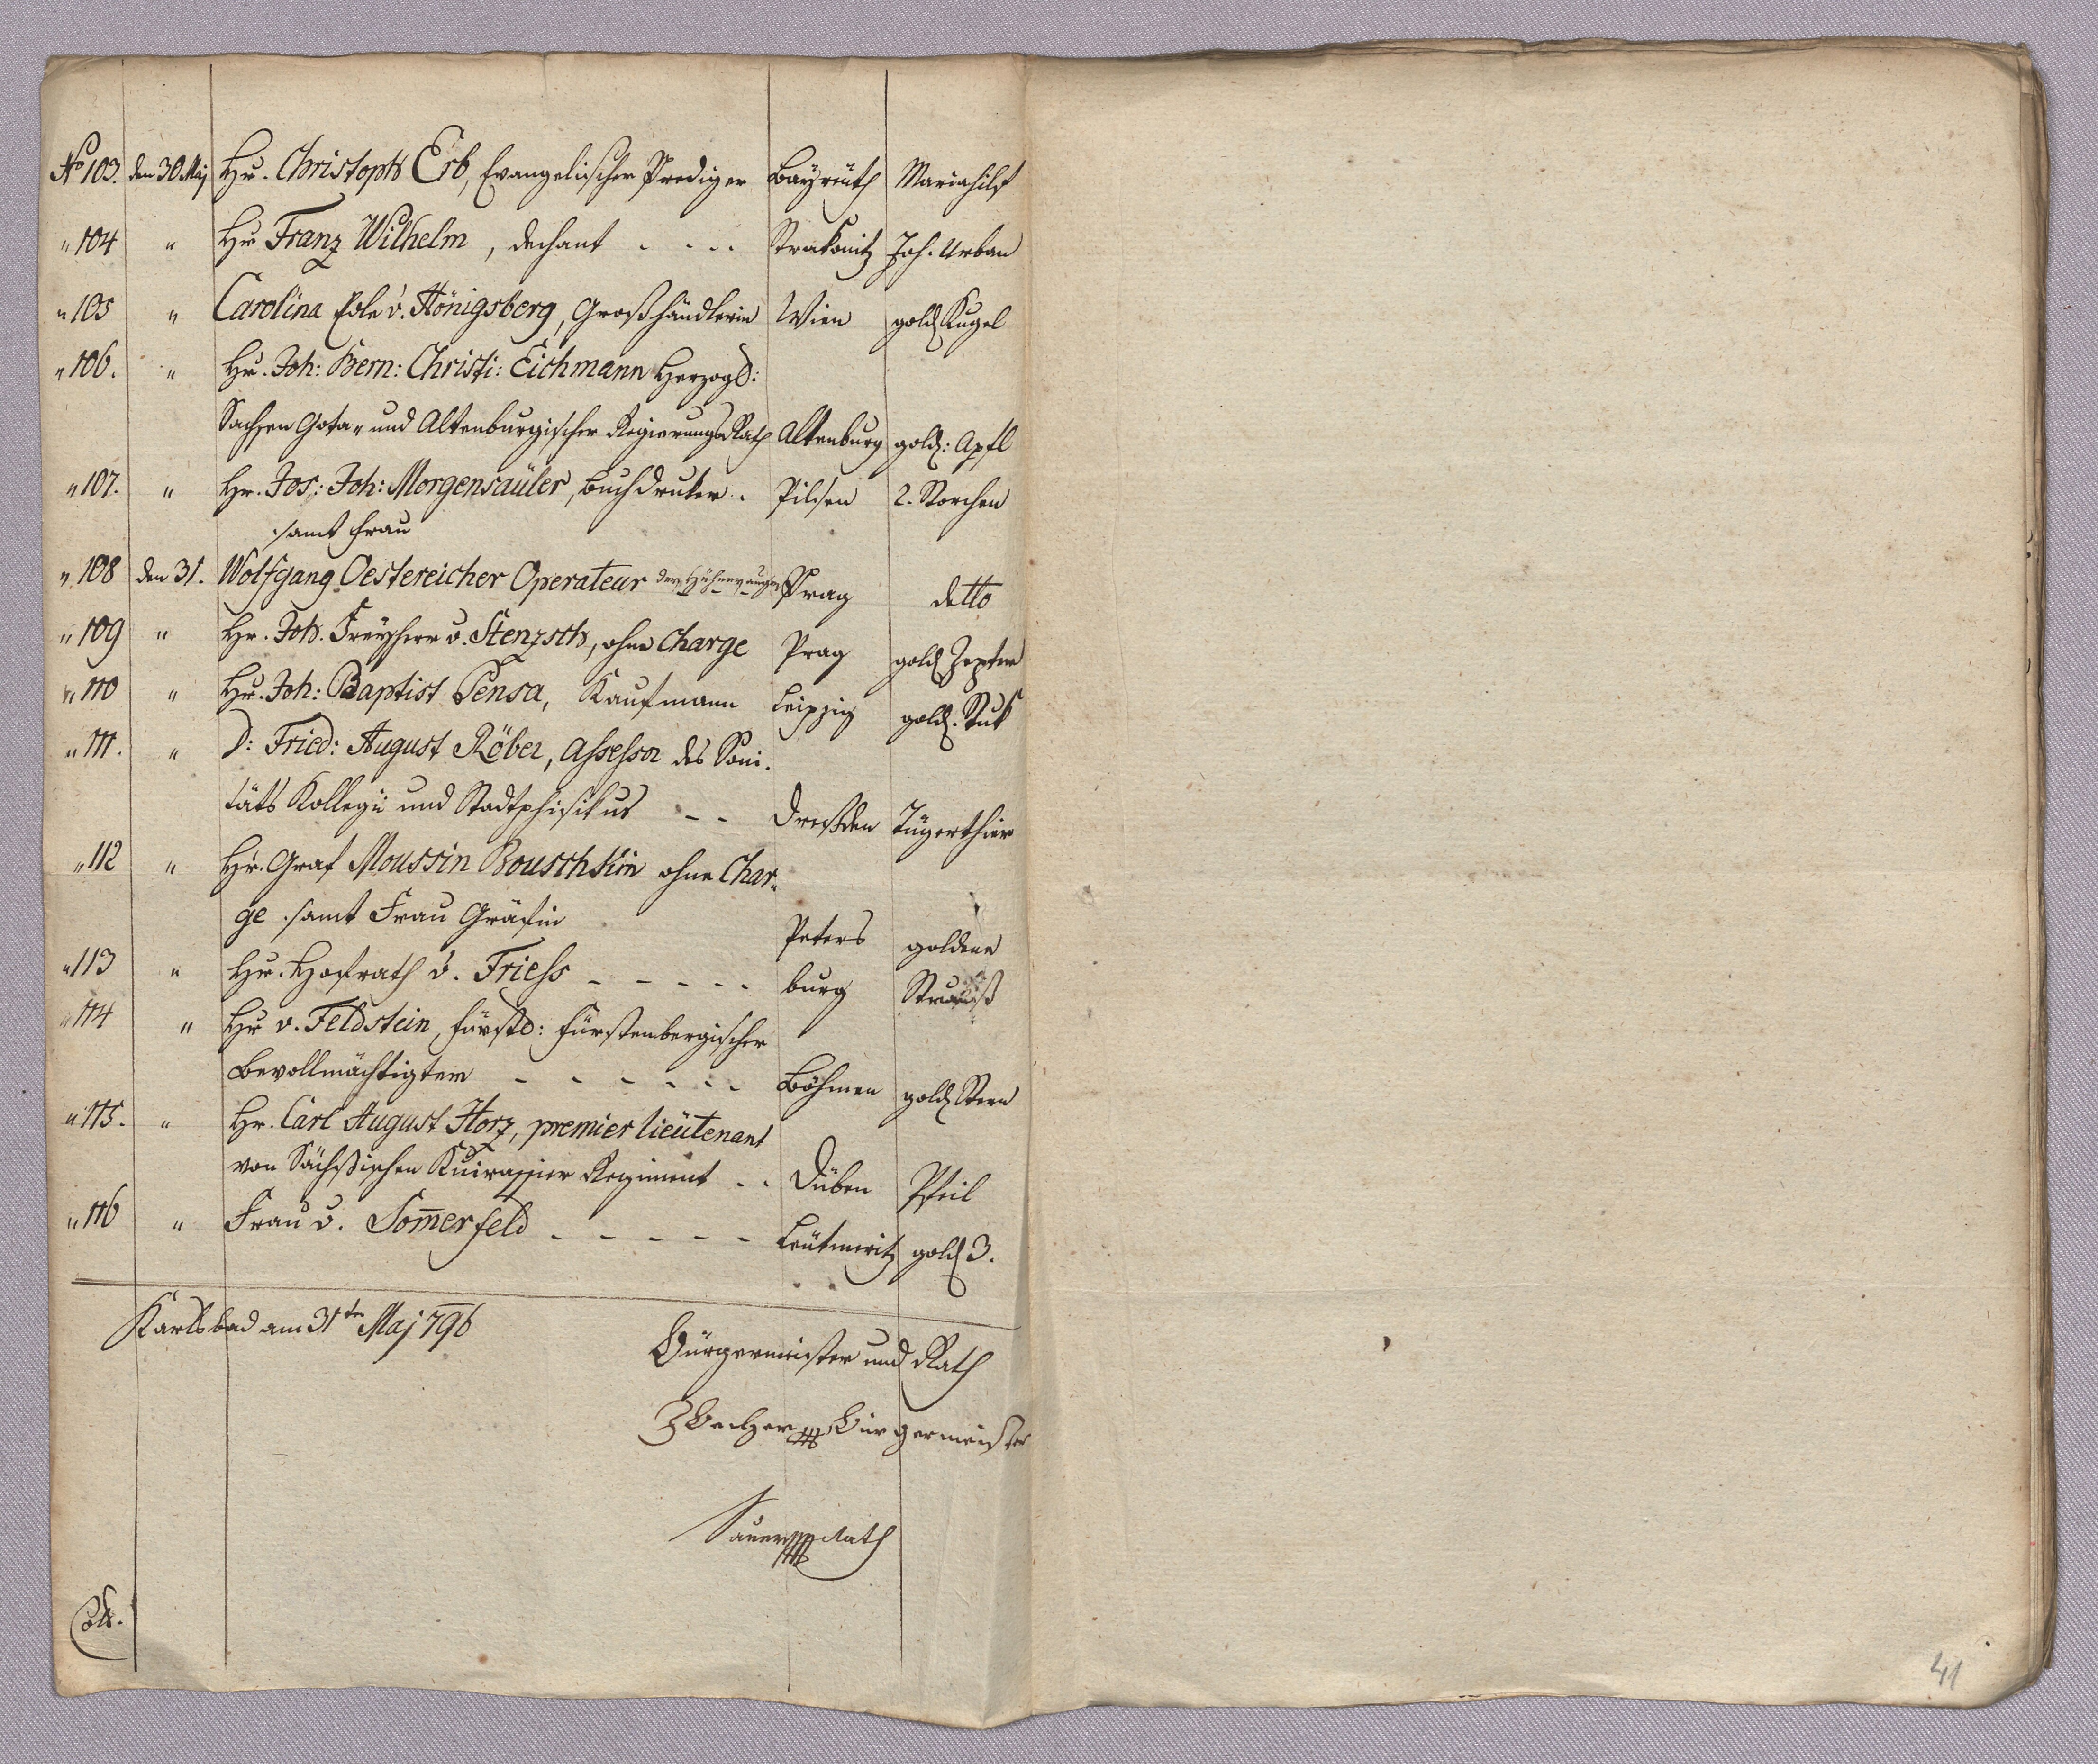 No 103. den 30 Maj Hr. Christoph Erb, Evangelischer Prediger Bayreuth Mariahilf
" 104 " Hr Franz Wilhelm, Dechant - - - - Strakonitz Joh. Urban
" 105 " Carolina Edle v. Hönigsberg, Großhändlerin Wien gold Kugel
" 106. " Hr. Joh: Bern: Christi: Eichmann Herzogl:
Sachsen Gota- und Altenburgischer Regierungs Rath Altenburg gold: Apfl
" 107. " Hr. Jos: Joh: Morgensäuler, Buchdruker. Pilsen 2. Storchen
samt Frau
" 108 den 31. Wolfgang Oestereicher Operateur der Hühneraugen Prag detto
" 109 " Hr. Joh. Freyherr v. Stenzsch, ohne Charge Prag gold Zepter
" 110 " Hr. Joh: Baptist Pensa, Kaufmann Leipzig gold. Stuk
" 111. " D: Fried: August Röber, Assessor des Sani-
täts Kollegii und Stadtphisikus - - Dresden Tügerthier
" 112 " Hr. Graf Moussin Bouschkin ohne Char-
ge samt Frau Gräfin Peters goldene
" 113 " Hr. Hofrath v. Friess - - - - - burg Strauß
" 114 " Hr v. Feldstein, fürstl: Fürstenbergischer
Bevollmächtigter - - - - - - Böhmen gold Stern
" 115. " Hr. Carl August Horz, premier lieütenant
von Sächsischen Kuirassier Regiment - - Düben Pfeil
" 116 " Frau v. Som̄erfeld - - - - - Leutmeritz gold 3.
Karlsbad am 31ten Maj 796
Bürgermeister und Rath
Becher Bürgermeister
Sauer Rath
41